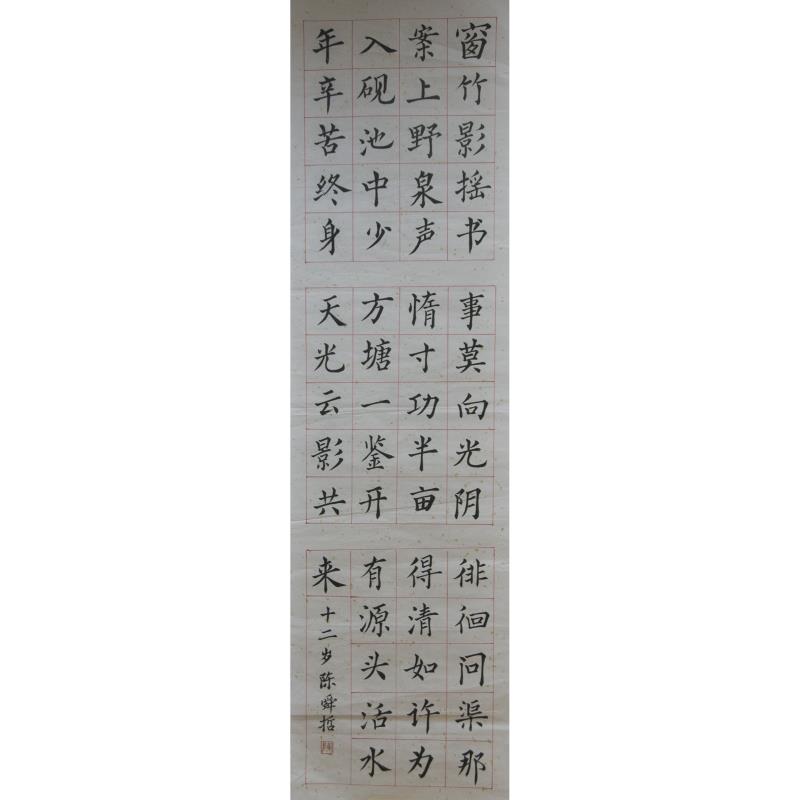 窗竹影摇书
案上野泉声
入砚池中少
年辛苦终身
事莫向光阴
惰寸功半亩
方塘一鉴开
天光云影共
徘徊问渠那
得清如许为
有源头活水
来
十二岁陈舜哲